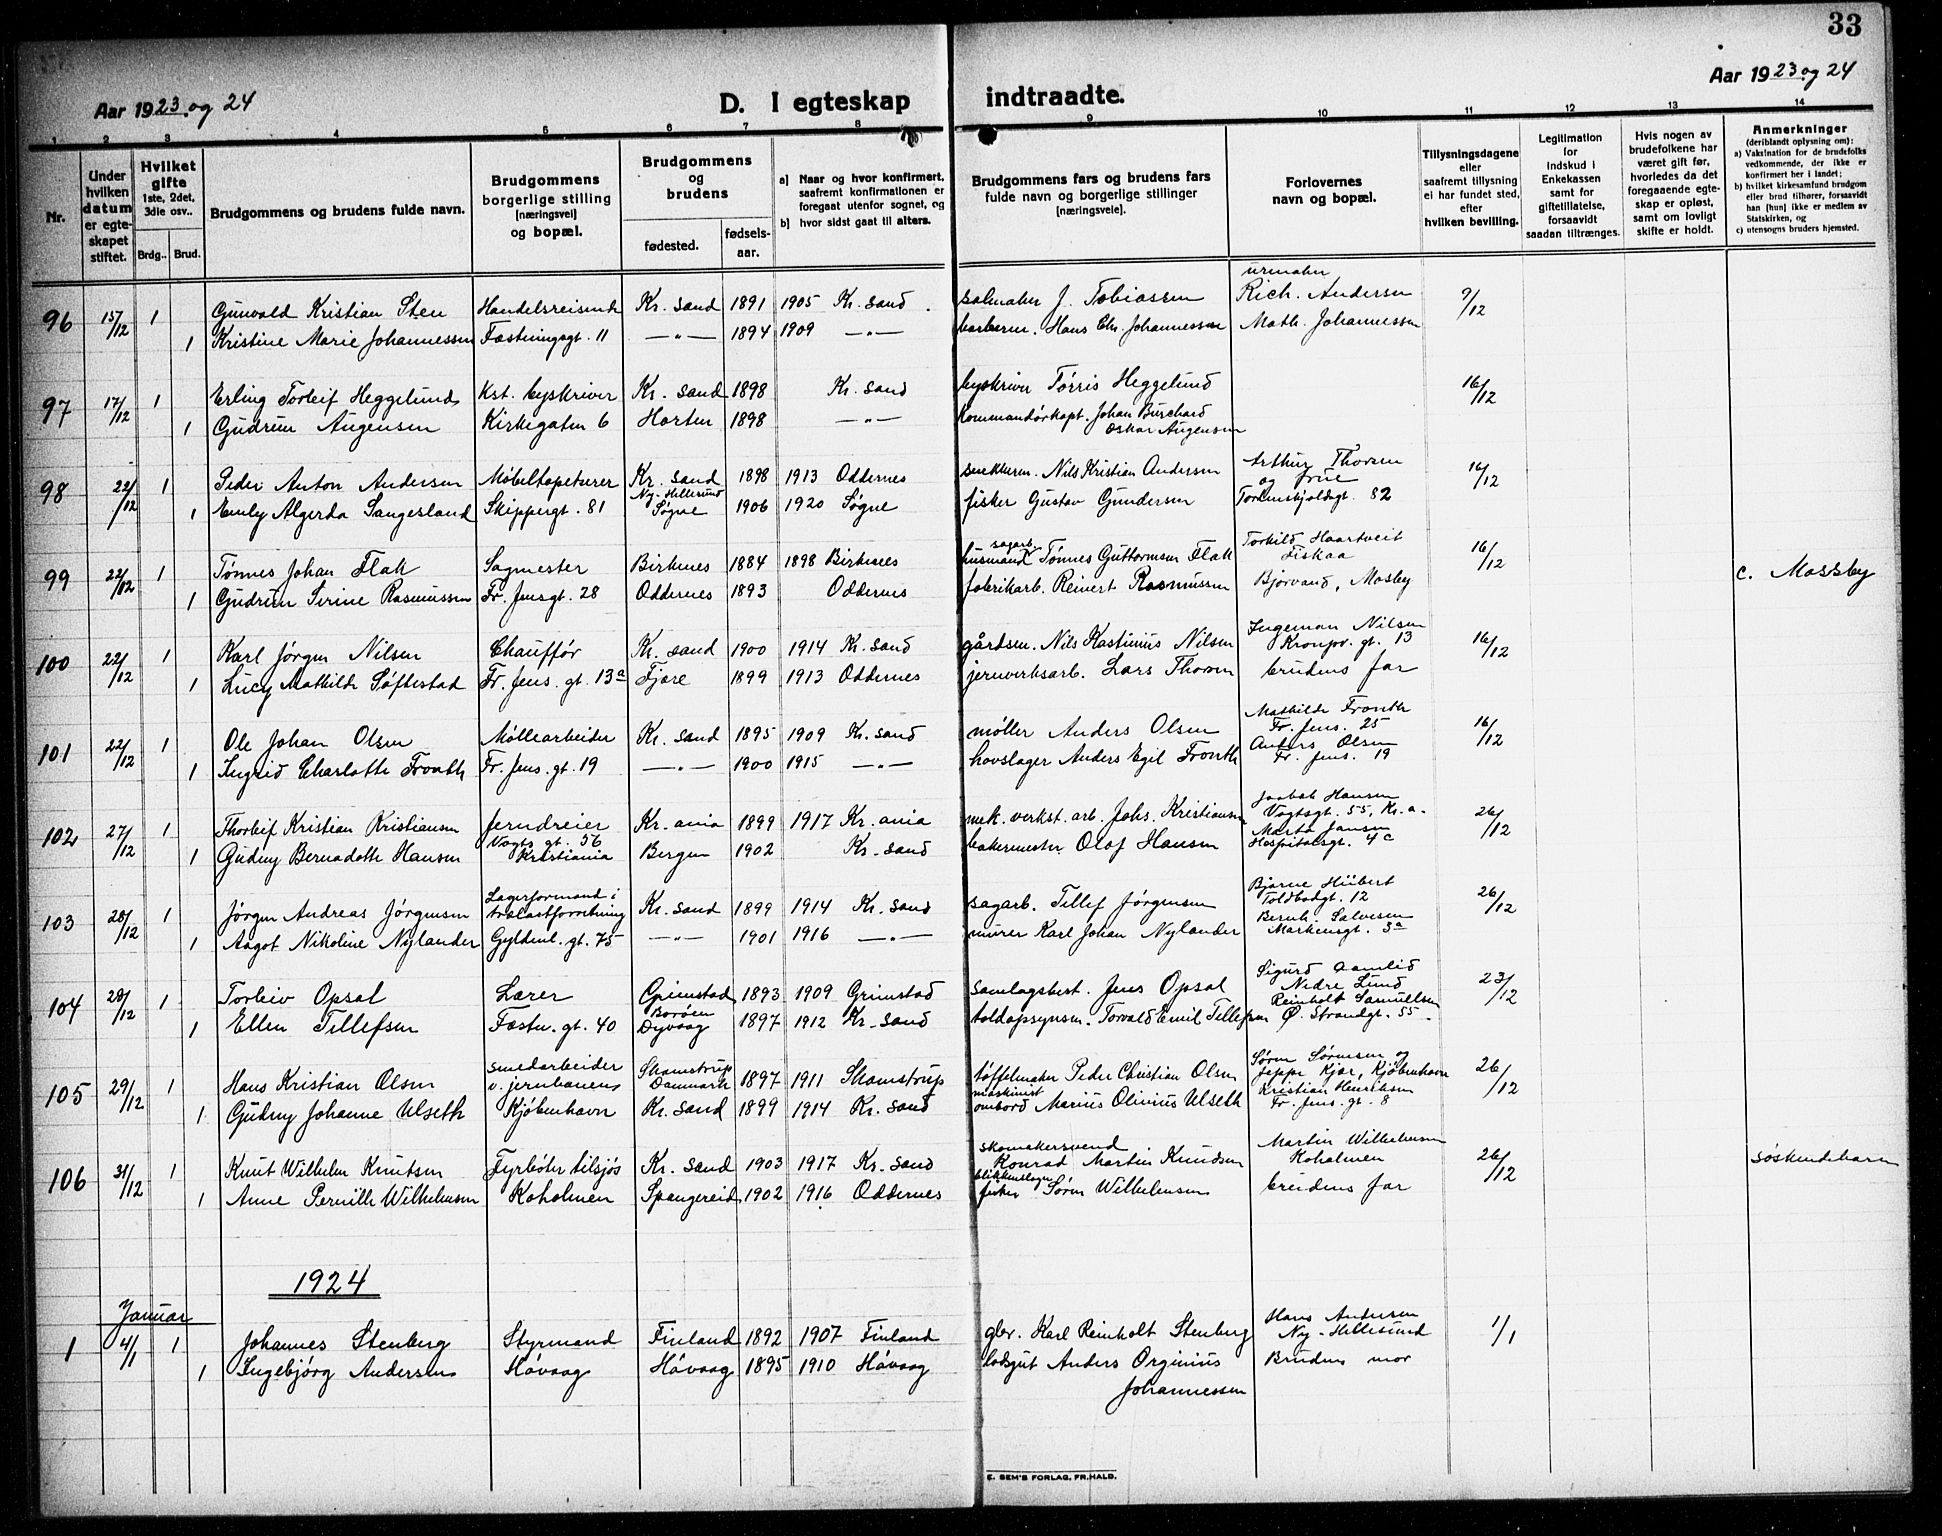 33
Aar 1923 og 24
D. I egteskap indtraadte.
Aar 1923 og 24
1 2 3 4 5 6 7 8 9 10 11 12 13 14
Nr.
Under hvilken datum er egteskapet stiftet.
Hvilket gifte 1ste, 2det, 3die osv..
Brdg.. Brud.
Brudgommens og brudens fulde navn.
Brudgommens borgerlige stilling [næringsvei] og bopæl.
Brudgommens og brudens
fødested. fødsels-aar.
a) Naar og hvor konfirmert, saafremt konfirmationen er foregaat utenfor sognet, og
b) hvor sidst gaat til alters.
Brudgommens fars og brudens fars fulde navn og borgerlige stillinger [næringsveie].
Forlovernes navn og bopæl.
Tillysningsdagene eller saafremt tillysning ei har fundet sted, efter hvilken bevilling.
Legitimation for Indskud i Enkekassen samt for giftetillatelse, forsaavidt saadan tiltrænges.
Hvis nogen av brudefolkene har været gift før, hvorledes da det foregaaende egteskap er opløst, samt om lovligt skifte er holdt.
Anmerkninger (deriblandt oplysning om):
a) Vaksination for de brudefolks vedkommende, der ikke er konfirmert her i landet;
b) hvilket kirkesamfund brudgom eller brud tilhører, forsaavidt han [hun] ikke er medlem av Statskirken, og
c) utensogns bruders hjemsted.
urmaker
96 15/12 1 Gunvald Kristian Sten Handelsreisende Kr. sand 1891 1905 Kr. sand. salmaker J. Tobiassen Rich. Andersen 9/12
1 Kristine Marie Johannessen Fæstningsgt. 11 —"— 1894 1909 —"— Hans Chr. Johannessen Math. Johannessen
97 17/12 1 Erling Torleif Heggelund Kst. byskriver Kr. sand 1898 Kr. sand byskriver Tørris Heggelund 16/12
1 Gudrun Augensen Kirkegaten 6 Horten 1898 —"— Kommandørkapt. Johan Burchard
Oskar Augensen
98 22/12 1 Peder Anton Andersen Møbeltapetserer Kr. sand 1898 1913 Oddernes snekkerm. Nils Kristian Andersen Arthur Thorsen og frue 16/12
1 Emly Algerda Langesland Skippergt. 81 Ny-Hellesund Søgne 1906 1920 Søgne fisker Gustav Gundersen Tordenskjoldsgt. 82
99 22/12 1 Tønnes Johan Flak Sagmester Birkenes 1884 1898 Birkenes sagarb. husmand Tønnes Guttormsen Flak Torkild Haartveit Fiskaa 16/12
1 Gudrun Serine Rasmussen Fr. Jensgt. 28 Oddernes 1893 Oddernes fabrikarb. Reinert Rasmussen Bjørvand, Mosby c. Mossby
100 22/12 1 Karl Jørgen Nilsen Chauffør Kr. sand 1900 1914 Kr. sand gårdsen. Nils Kastinius Nilsen Ingeman Nilsen Kronpr. gt. 13 16/12
1 Lucy Mathilde Søftestad Fr. Jens. gt. 13a Fjære 1899 1913 Oddernes jernverksarb. Lars Thorsen brudens far
101 22/12 1 Ole Johan Olsen Møllearbeider Kr. sand 1895 1909 Kr. sand møller Anders Olsen Mathilde Fronth Fr. Jens. 25 16/12
1 Ingrid Charlotte Fronth Fr. Jens. gt. 19 —"— 1900 1915 —"— hovslager Anders Egil Fronth Anders Olsen Fr. Jens. 19
102 27/12 1 Thorleif Kristian Kristiansen Jerndreier Kr. ania 1899 1917 Kr. ania mek. verkst. arb. Johs. Kristiansen Jakob Hansen Vogtsgt. 55, Kr.a. 26/12
1 Gudny Bernadotte Hansen Vogts gt. 56 Kristiania Bergen 1902 Kr. sand bakermester Olof Hansen Marta Jansen Hospitalsgt. 4c
103 28/12 1 Jørgen Andreas Jørgensen Lagerformand i trælastforretning Kr. sand 1899 1914 Kr. sand sagarb. Tellef Jørgensen Bjarne Hübert Toldbodgt. 12 26/12
1 Aagot Nikoline Nylander Gyldenl. gt. 75 —"— 1901 1916 —"— murer Karl Johan Nylander Bernh. Salvesen Markensgt. 3a
104 28/12 1 Torleiv Opsal Lærer Grimstad 1893 1909 Grimstad samlagsbest. Jens Opsal Sigurd Aamlid Nedre Lund 23/12
1 Ellen Tellefsen Fæstn. gt. 40 Borøen Dyvaag 1897 1912 Kr. sand toldopsynsm. Torvald Emil Tellefsen Reinholt Samuelsen Ø. Strandgt. 55.
105 29/12 1 Hans Kristian Olsen smedarbeider v. jernbanen Skamstrup Danmark 1897 1911 Skamstrup tøffelmaker Peder Christian Olsen Søren Sørensen og Jeppe Kjær, Kjøbenhavn 26/12
1 Gudny Johanne Ulseth Kjøbenhavn Kr. sand 1899 1914 Kr. sand maskinist ombord Marius Olivius Ulseth Kristian Henriksen Fr. Jens. gt. 8
106 31/12 1 Knut Wilhelm Knutsen Fyrbøter tilsjøs Kr. sand 1903 1917 Kr. sand skomakersvend Konrad Martin Knudsen Martin Wilhelmsen Koholmen 26/12 søskendebarn
1 Anne Pernille Wilhelmsen Koholmen Spangereid 1902 1916 Oddernes fisker Søren Wilhelmsen brudens far
1924
Januar
1 4/1 1 Johannes Stenberg Styrmand Finland 1892 1907 Finland gbr. Karl Reinholt Stenberg Hans Andersen Ny-Hellesund 1/1
1 Ingebjørg Andersen Høvaag Høvaag 1895 1910 Høvaag lodsgut Anders Orginius Brudens mor
Johannessen
E. SEM'S FORLAG, FR.HALD.